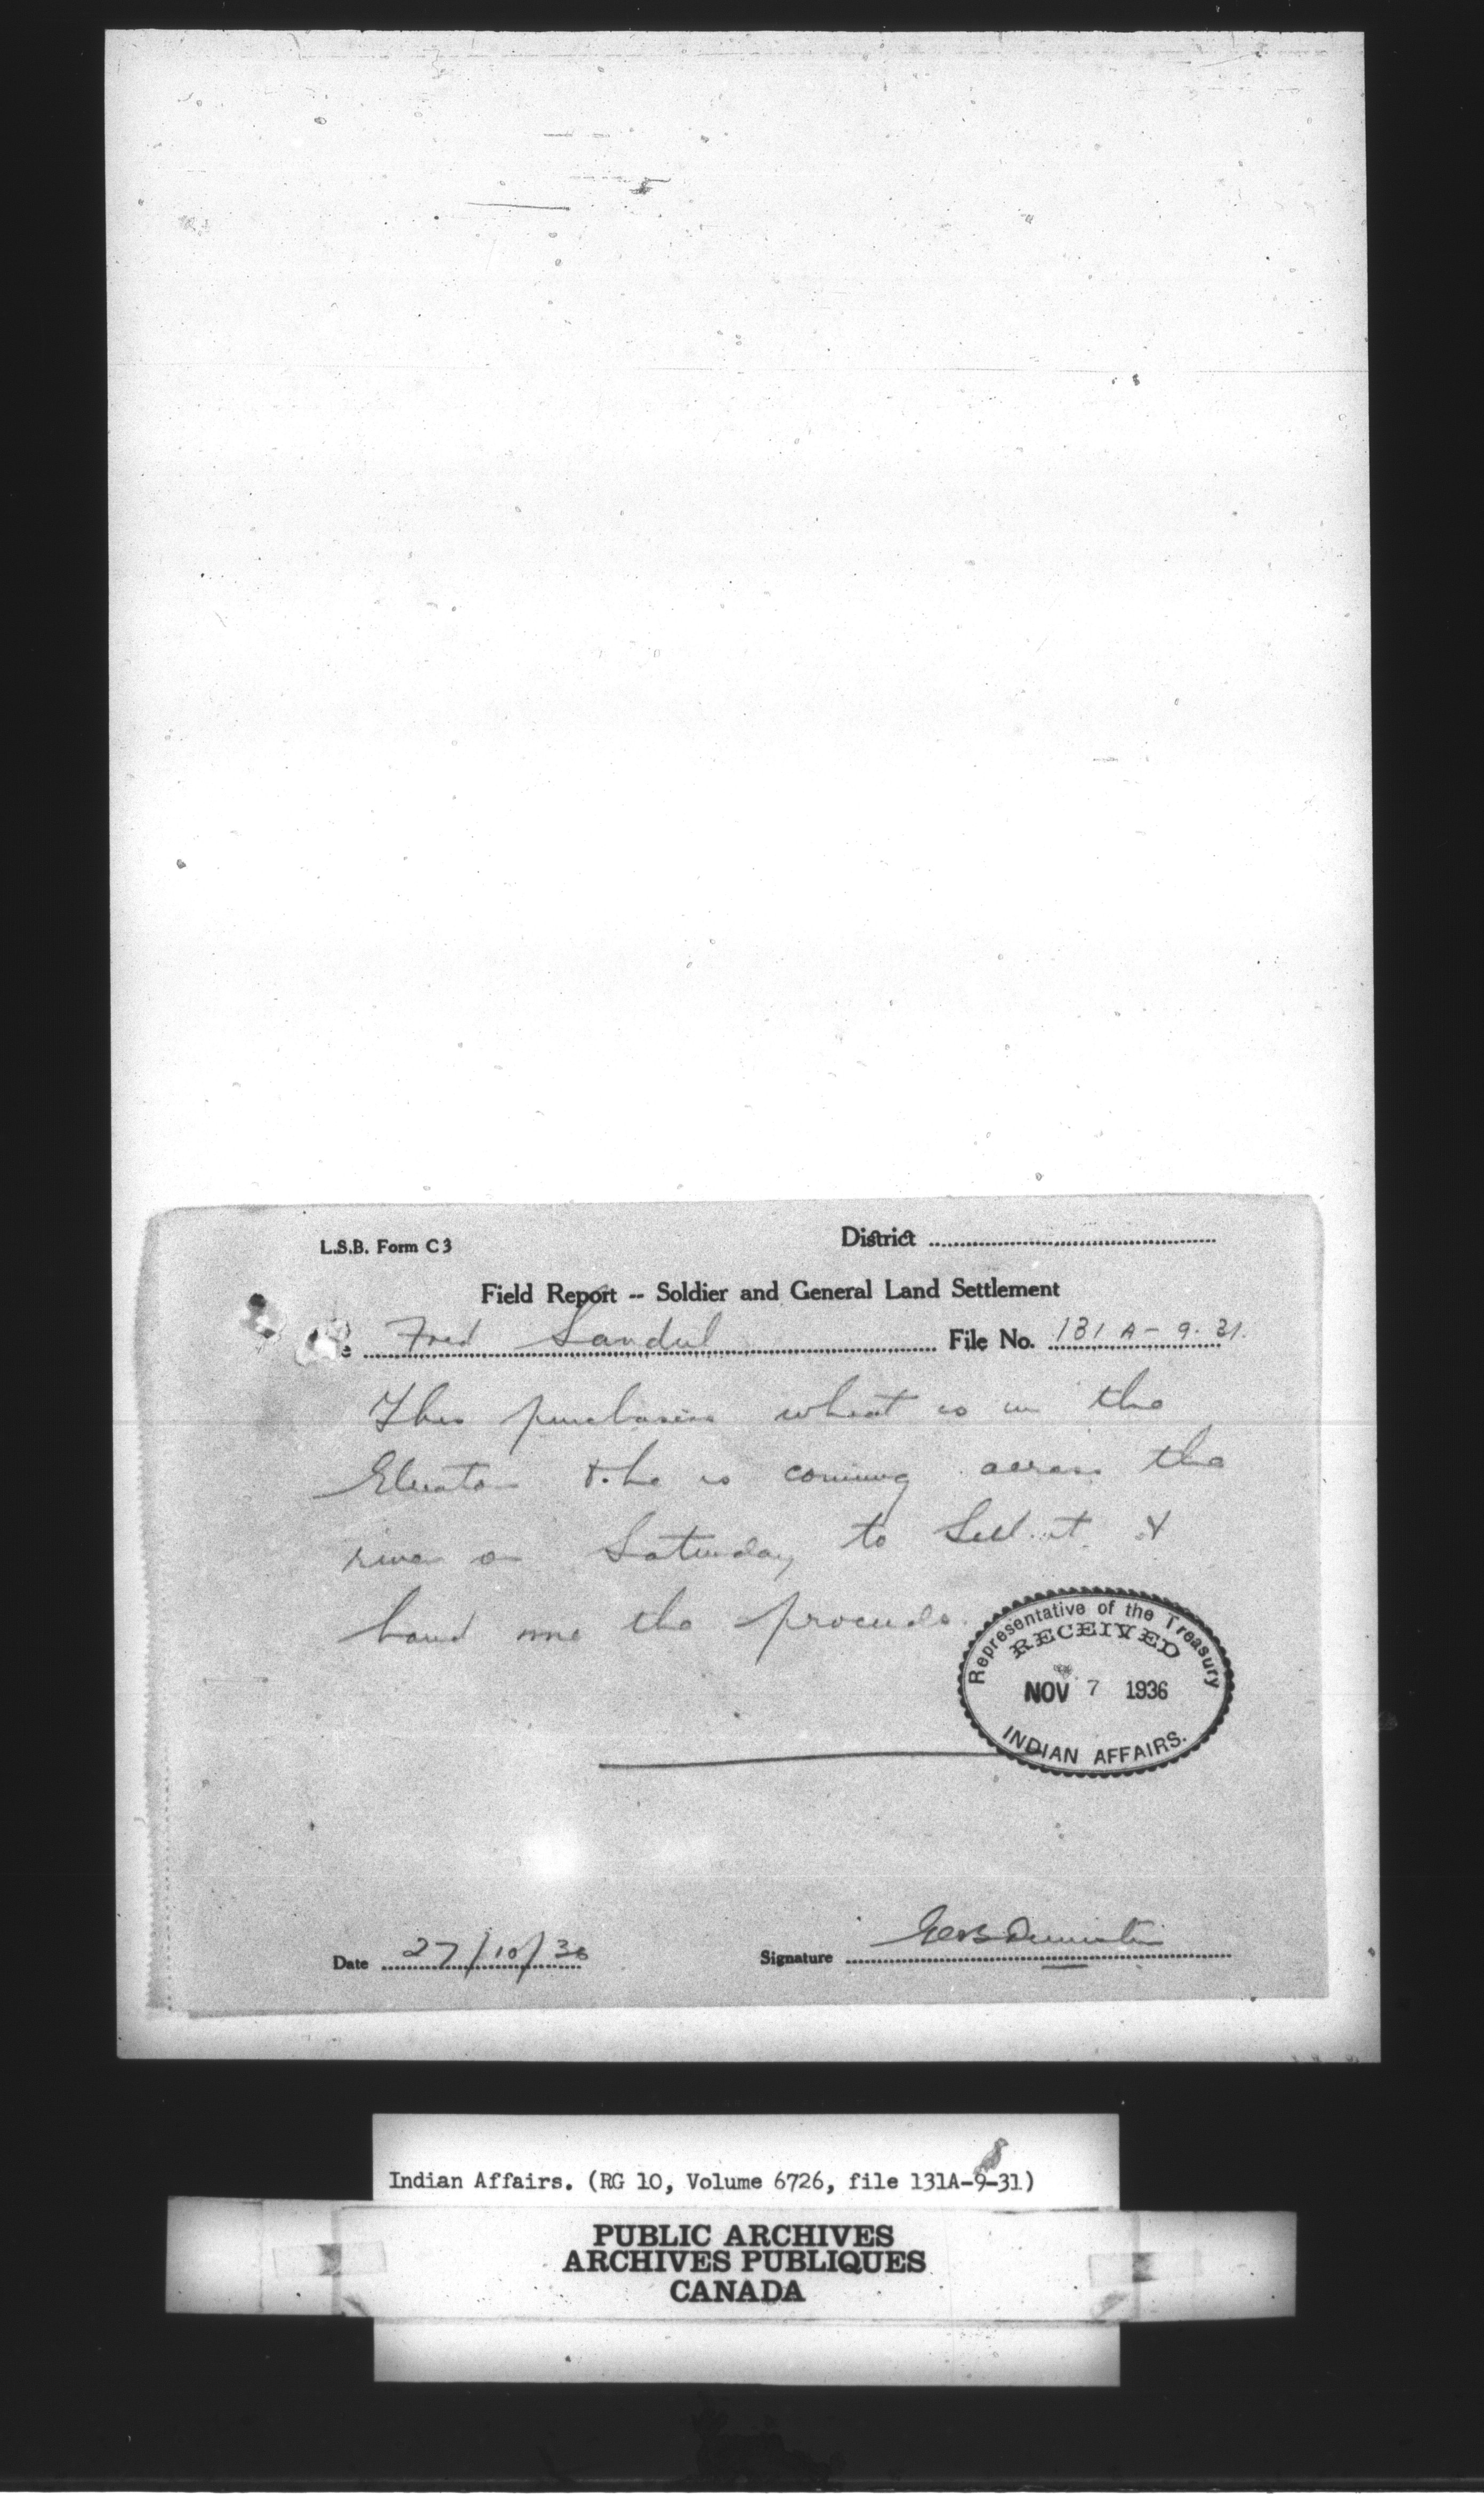 L.S.B. Form C3
District
Field Report -- Soldier and General Land Settlement
Fred Sandul File No. 131 A - 9 - 31.
This purchasers wheat is in the
Elevator & he is coming across the
river on Saturday to Sell it &
hand me the proceeds.
Representative of the Treasury
RECEIVED
NOV 7 1936
INDIAN AFFAIRS.
Date 27/10/36 Signature
Indian Affairs. (RG 10, Volume 6726, file 131A-9-31)
PUBLIC ARCHIVES
ARCHIVES PUBLIQUES
CANADA